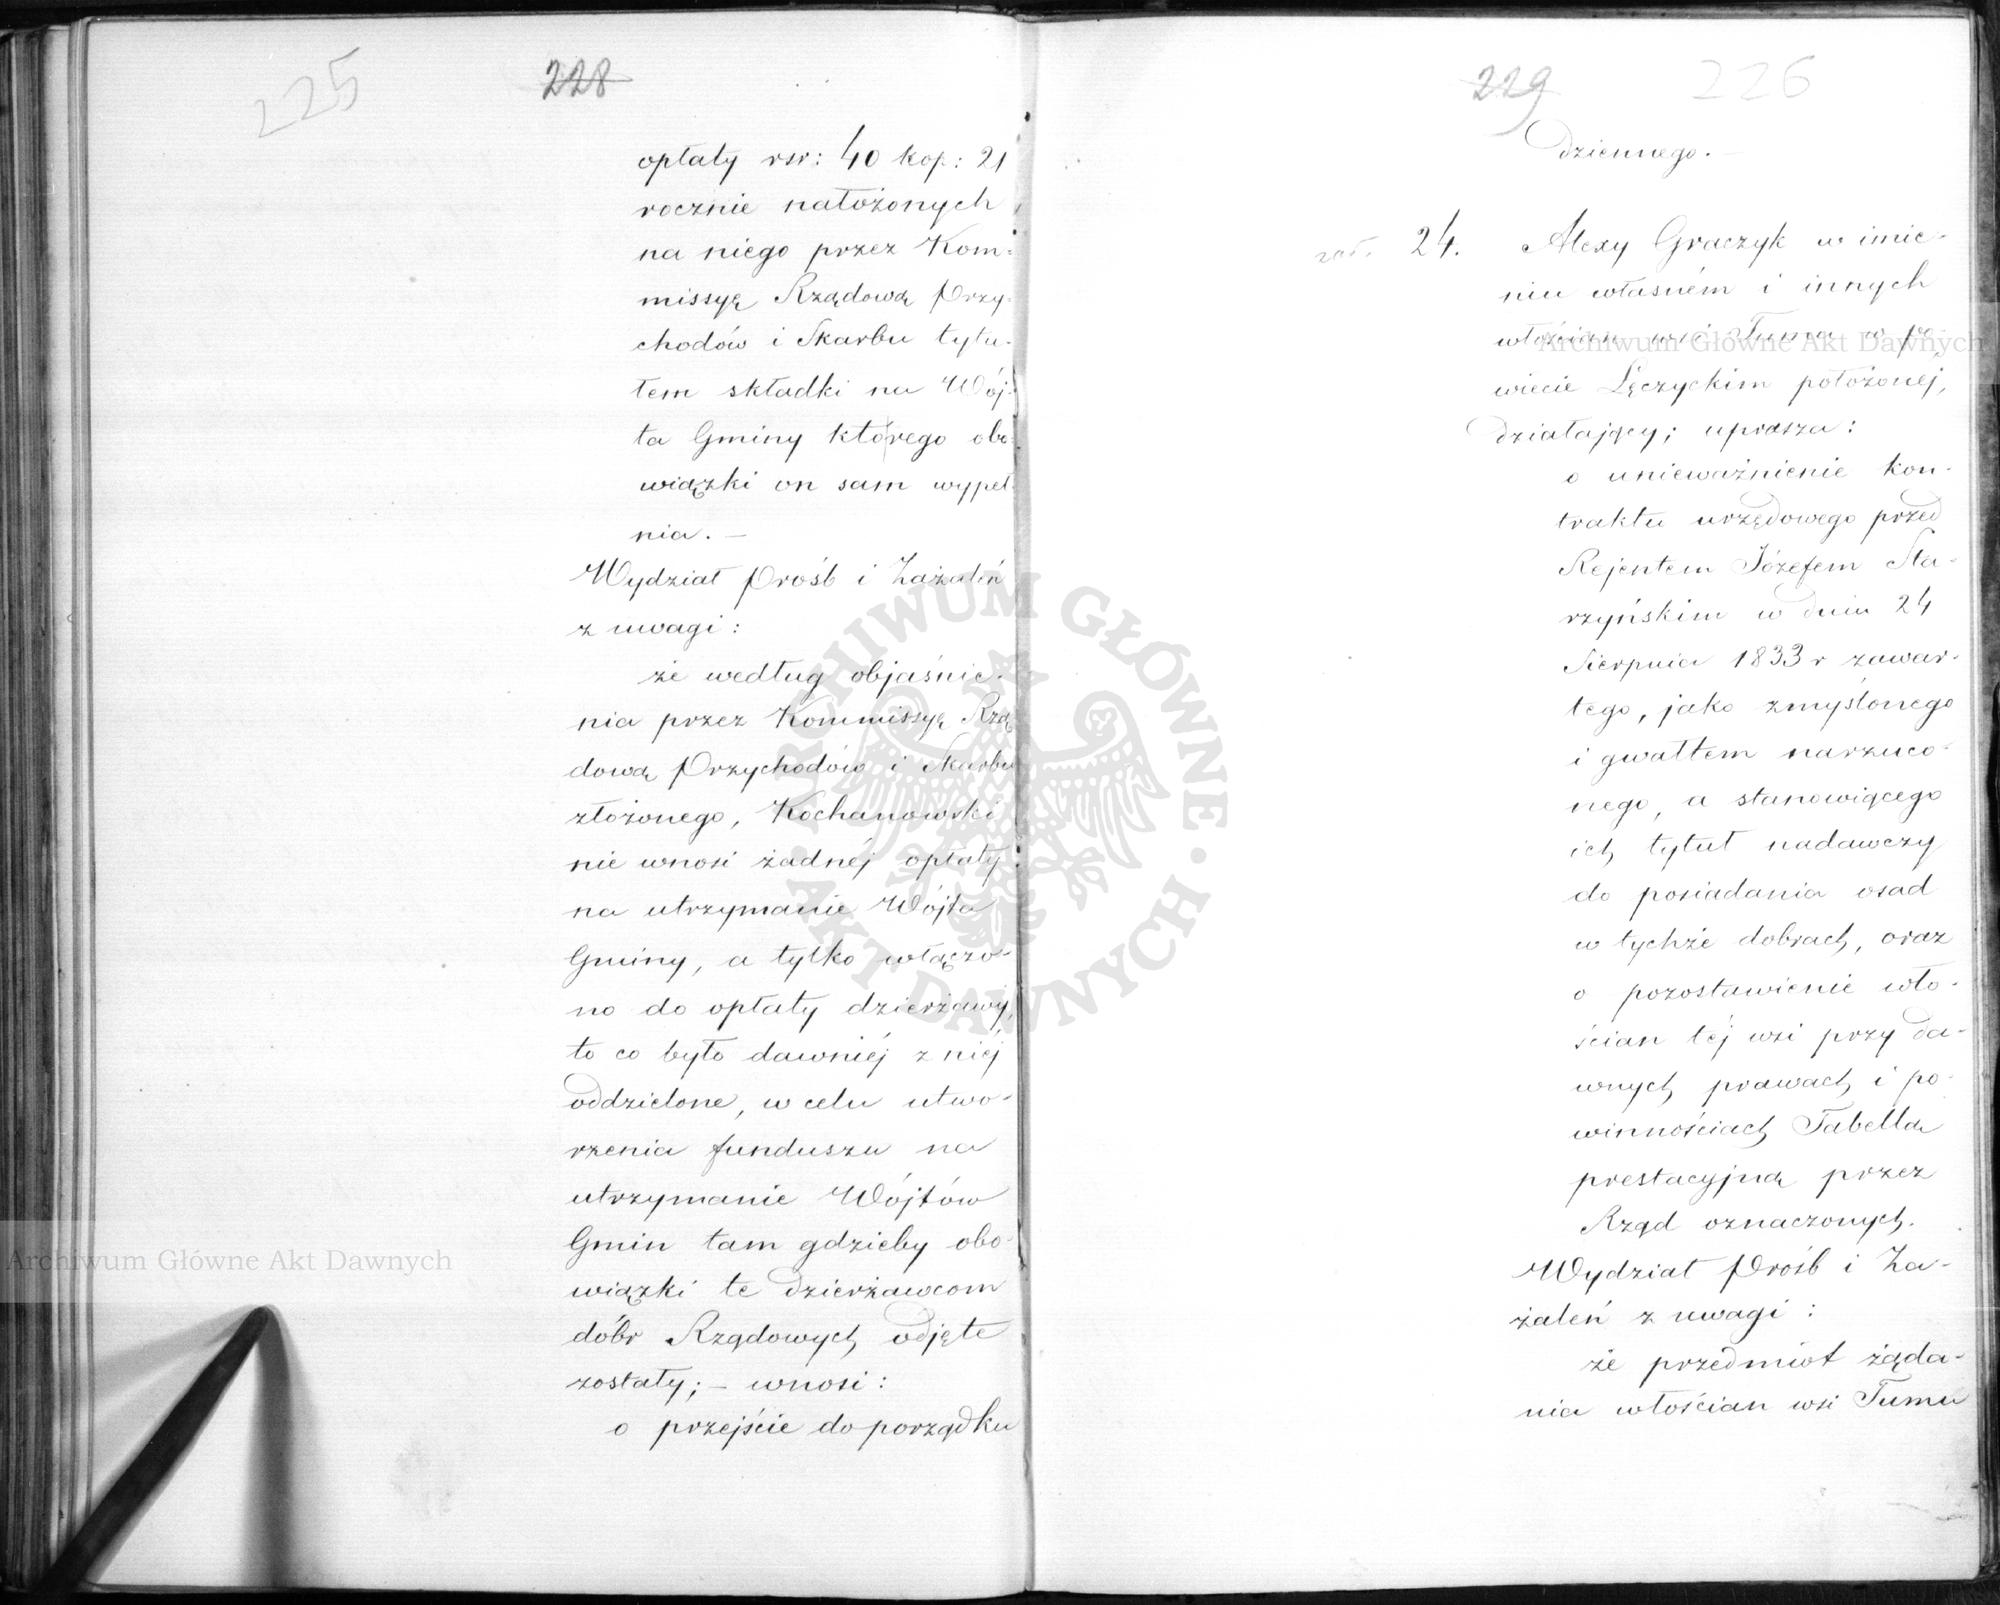 225
228
opłaty rsr: 40 kop: 21
rocznie nałożonych
na niego przez Kom=
missyę Rządową Przy-
chodów i Skarbu tytu-
łem składki na Wój-
ta Gminy którego obo-
wiązki on sam wypeł-
nia. —
Wydział Próśb i Zażaleń
z uwagi:
że według objaśnie-
nia przez Kommissyę Rzą
dową Przychodów i Skarbu
złożonego, Kochanowski
nie wnosi żadnéj opłaty
na utrzymanie Wójta
Gminy, a tylko włączo-
no do opłaty dzierżawy,
to co było dawniéj z niéj
oddzielone, w celu utwo-
rzenia funduszu na
utrzymanie Wójtów
Gmin tam gdzieby obo-
wiązki te dzierżawcom
dóbr Rządowych odjęte
zostały; — wnosi:
o przejście do porządku
229
226
dziennego. —
24. Alexy Graczyk w imie-
niu własném i innych
włościan wsi Tuma w po-
wiecie Łęczyckim położonéj,
działający; uprasza:
o unieważnienie kon-
traktu urzędowego przed
Rejentem Józefem Sta-
rzyńskim w dniu 24
Sierpnia 1833 r zawar-
tego, jako zmyślonego
i gwałtem narzuco-
nego, a stanowiącego
ich tytuł nadawczy
do posiadania osad
w tychże dobrach, oraz
o pozostawienie wło-
ścian téj wsi przy da-
wnych prawach i po-
winnościach Tabellą
prestacyjną przez
Rząd oznaczonych.
Wydział Próśb i Za-
żaleń z uwagi:
że przedmiot żąda-
nia włościan wsi Tumu
Archiwum Główne Akt Dawnych
Archiwum Główne Akt Dawnych
ARCHIWUM GŁÓWNE
AKT DAWNYCH